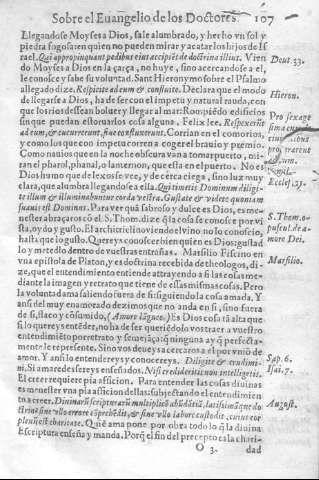 Sobre el Euangelio de los Doctores. 107
Llegandose Moyses a Dios, sale alumbrado, y hecho vn sol y
piedra fogosa en quien no pueden mirar y acatar los hijos de Is
rael. Qui appropinquant pedibus eius accipiẽt de doctrina illius. Vien
do Moyses a Dios en la çarça, no huye, sino acercandose a el,
le conosce y sabe su voluntad. Sant Hieronymo sobre el Psalmo
allegado dize. Respicite ad eum & confluite. Declara que el modo
de llegarse a Dios, ha de ser con el impetu y natural rauda, con
que los rios dessean boluer y llegar al mar: Rompiẽdo edificios
sin que puedan estoruarlos cosa alguna, Felix lee. Respexerũt
ad eum, & cucurrerunt, siue confluxerunt. Corrian en el comorios,
y como los que con impetu corren a coger el brauio y premio.
Como nauios que en la noche obscura van a tomar puerto, mi-
ran el pharol, phanal, o lanternon, que esta en el puerto. No es
Dios humo que de lexos se vee, y de cerca ciega, sino luz muy
clara, que alumbra llegandose a ella. Qui timetis Dominum diligi-
te illum & illuminabuntur corda vestra. Gustate & videte quoniam
suauis est Dominus. Para ver quã sabroso y dulce es Dios, es me
nester abraçaros cõ el. S. Thom. dize q̃ la cosa se conosce por vi
sta, oydo y gusto. El architriclino viendo el vino no lo conoscio,
hasta que lo gusto. Quereys conoscer bien quien es Dios: gustad
lo y metedlo dentro de vuestras entrañas. Marsilio Fiscino en
vna epistola de Platon, y es doctrina recebida de theologos, di-
ze, que el entendimiento entiende atrayendo a si las cosas me-
diante la imagen y retrato que tiene de essas mismas cosas. Pero
la voluntad ama saliendo fuera de si: siguiendo la cosa amada. Y
ansi del muy enamorado dezimos que no anda en si, sino fuera
de si, flaco y cõsumido, (Amore lãgueo.) Es Dios cosa tã alta que
si lo quereys entẽder, no ha de ser queriẽdolo vostraer a vuestro
entendimiẽto por retrato y semejãça: q̃ ninguna ay q̃ perfecta-
mente le represente. Sino vos deueys acercaros a el por vniõ de
amor. Y ansi lo entendereys y conocereys. Diligite & erudimi-
ni. Si amaredes sereys enseñados. Nisi credideritis, non intelligetis.
El creer requiere pia afficion. Para entender las cosas diuinas
es menester vna pia afficion dellas: subjectando el entendimien
to a creer. Diuinarũ scripturarũ multiplicẽ abũdãtiã, latissimãque do
ctrinã sine vllo errore cõprehẽdit, & sine vllo labore custodit, cuius cor
plenũ est charitate. Quiẽ ama pone por obra todo lo q̃ la diuina
Escriptura enseña y manda. Porq̃ el fin del precepto es la chari-
O 3. dad
Deut. 33.
Hieron.
Pro sexage
sima
Ecclesi. 23.
S. Thom. o-
puscul. de a-
more Dei.
Marsilio.
Sap. 6.
Isai. 7.
August.